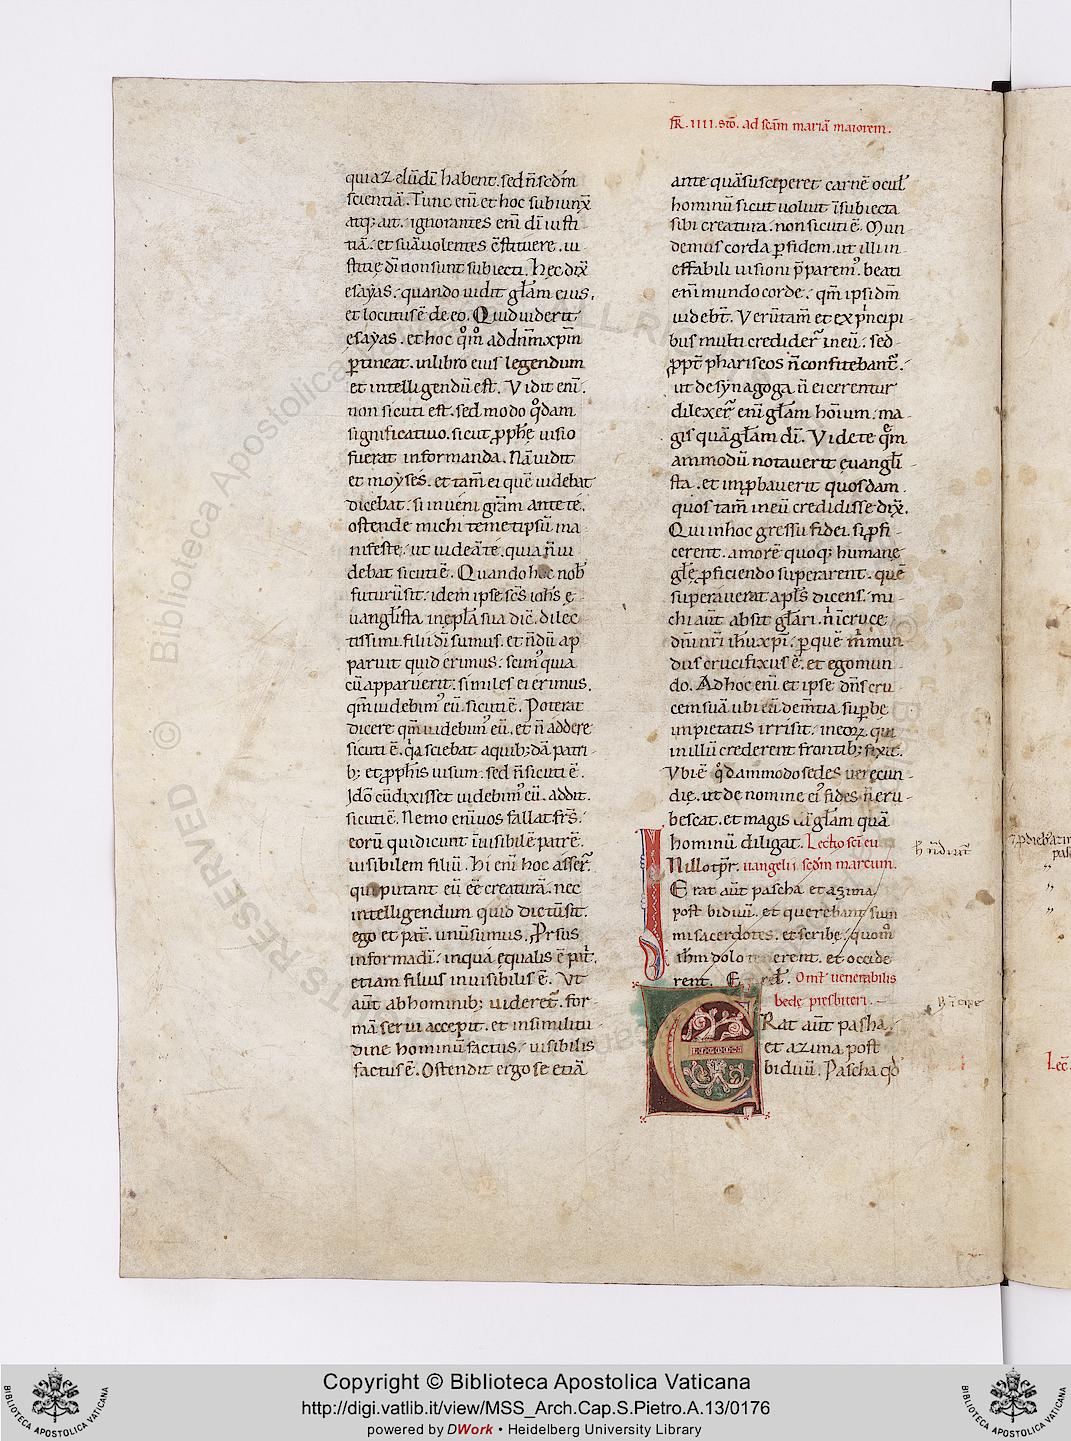 fr̄. IIII. stō. ad scām mariā maiorem.
quia zelū dī habent. sed n̄ scdm̄
scientiā. Tunc enī et hoc subiunx̄
atq; ait. ignorantes enī dī iusti
tiā. et suā uolentes c̄stituere. iu
stitię dī non sunt subiecti. Hęc dix̄
esayas. quando uidit glām eius.
et locutus ē de eo. Quid uiderit
esayas. et hoc qm̄ ad dn̄m xp̄m
ꝑtineat. in libro eius legendum
et intelligendū est. Vidit enī.
non sicuti est. sed modo qdam
significatiuo. sicut ꝓphę uisio
fuerat informanda. Nā uidit
et moyses. et tam̄ ei quē uidebat
dicebat. si inueni grām ante te.
ostende michi temetipsū ma
nifeste. ut uideā te. quia n̄ ui
debat sicuti ē. Quando hoc nob̄
futurū sit. idem ipse scs̄ iohs̄ ę
uanglista in epla sua dic̄. dilec
tissimi. filii dī sumus. et n̄dū ap
paruit quid erimus. scim' quia
cū apparuerit. similes ei erimus.
qm̄ uidebim' eū. sicuti ē. Poterat
dicere qm̄ uidebim' eū. et n̄ addere
sicuti ē. qa sciebat a quib;dā patri
b; et ꝓphis uisum. sed n̄ sicuti ē.
Ido cū dixisset uidebim' eū. addit.
sicuti ē. Nemo enī uos fallat frs̄.
eorū qui dicunt īuisibilē patrē.
uisibilem filiū. Hi enī hoc asser̄.
qui putant eū eē creaturā. nec
intelligendum quid dictū sit.
ego et pat̄. unū sumus. Prsus
in forma dī. in qua ęqualis ē pat̄.
etiam filius inuisibilis ē. Vt
aūt ab hominib; uideret̄. for
mā serui accepit. et in similitu
dine hominū factus. uisibilis
factus ē. Ostendit ergo se etiā
ante quā susciperet carnē ocul
hominū sicut uoluit ī subiecta
sibi creatura. non sicuti ē. Mun
demus corda ꝑ fidem. ut illi in
effabili uisioni p̄parem'. beati
enī mundo corde. qm̄ ipsi dm̄
uidebt̄. Verūtam̄ et ex principi
bus multi credider̄ in eū. sed
ꝓpt̄ phariseos n̄ confitebant̄.
ut de synagoga n̄ eicerentur
dilexer̄ enī glām hoīum. ma
gis quā glām dī. Videte quē
ammodū notauerit euangli
sta. et improbauerit quosdam.
quos tam̄ in eū credidisse dix̄.
Qui in hoc gressu fidei. si ꝓfi
cerent. amorē quoq; humanę
glę ꝓficiendo superarent. quē
superauerat apls̄ dicens. mi
chi aūt absit glāri. n̄ in cruce
dnī nri ihū xp̄i. ꝑ quē m̄ mun
dus crucifixus ē. et ego mun
do. Ad hoc enī et ipse dn̄s cru
cem suā ubi eū dem̄tia suꝑbę
impietatis irrisit. in eorꝫ qui
in illū crederent frontib; fixit.
Vbi ē qdammodo sedes uerecun
dię. ut de nomine ei' fides n̄ eru
bescat. et magis dī glām quā
hominū diligat. Lectio sci eu
IN illo tp̄r. uangelii scdm marcum.
Erat aūt pascha et azima
post biduū. et querebant sum
mi sacerdotes. et scribę. quom̄
ihm dolo tenerent. et occide
rent. Et rel̄. Oml̄ uenerabilis
bedę presbiteri.
ERat aūt pasha.
et azima post
biduū. Pascha qd̄
Lec̄.
© Biblioteca Apostolica Vaticana ALL RIGHTS RESERVED
Copyright © Biblioteca Apostolica Vaticana
http://digi.vatlib.it/view/MSS_Arch.Cap.S.Pietro.A.13/0176
powered by DWork • Heidelberg University Library
BIBLIOTECA APOSTOLICA VATICANA
BIBLIOTECA APOSTOLICA VATICANA